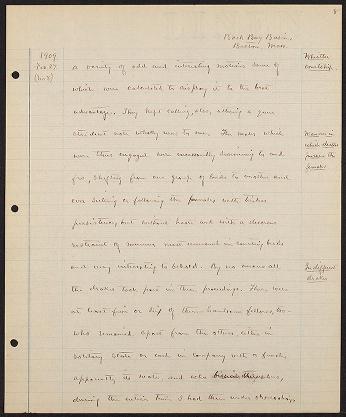 8
Back Bay Basin,
Boston, Mass.
1909
Feb. 27
(No 2)
a variety of odd and interesting motions some of
which were calculated to display it to the best
advantage. They kept calling, also, uttering a queer
strident note wholly new to me. The males which
were thus engaged were incessantly swimming to and
fro, shifting from one group of birds to another and
ever seeking or following the females with tireless
persistency, but without haste and with a decorous
restraint of manner most unusual in courting birds
and very interesting to behold. By no means all
the drakes took part in these proceedings. There were
at least five or six of them, handsome fellows, too—
who remained apart from the others either in
solitary state or each in company with a female,
apparently its mate, and who
during the entire time I had them under observation,
Whistler
courtship
Manner in
which drakes
pursue the
females
Indifferent
drakes